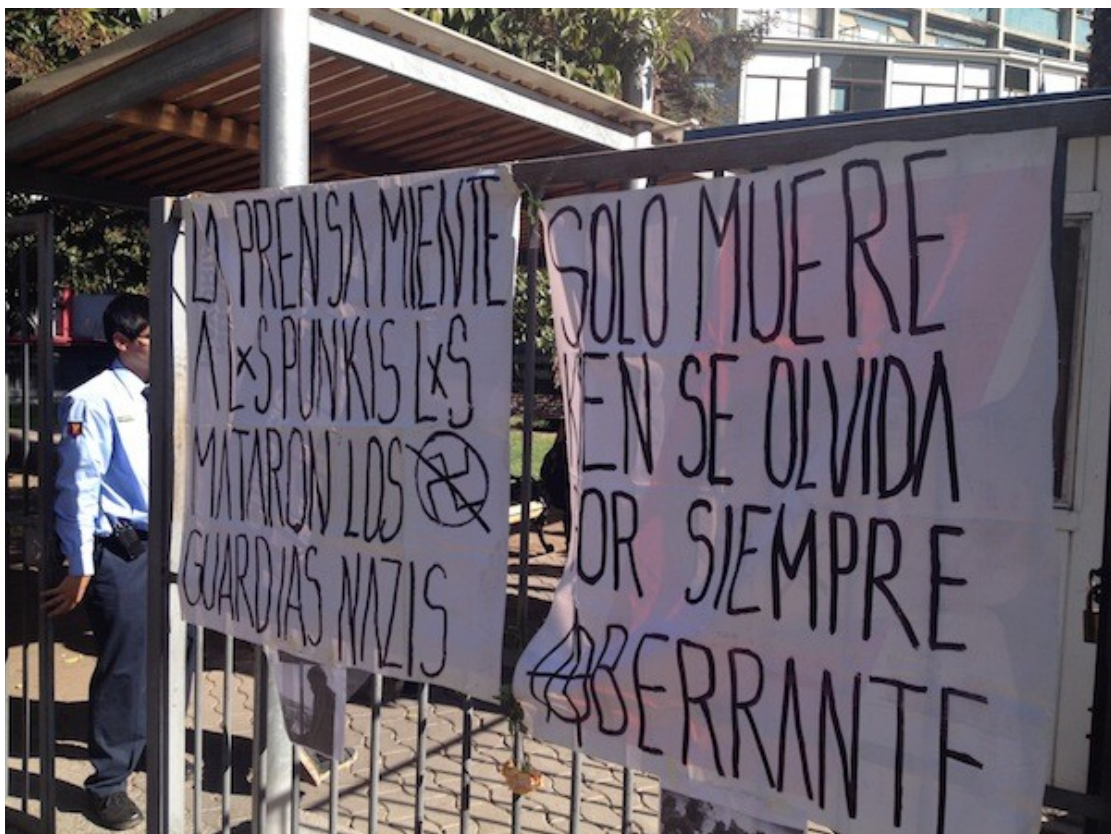 LA PRENSA MIENTE
A LXS PUNKIS LXS
MATARON LOS
GUARDIAS NAZIS
SOLO MUERE
KEN SE OLVIDA
OR SIEMPRE
ABERRANTE